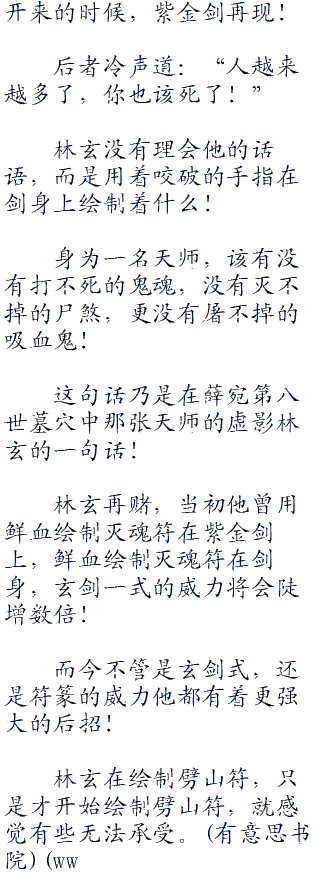 开来的时候，紫金剑再现！
后者冷声道：“人越来
越多了，你也该死了！”
林玄没有理会他的话
语，而是用着咬破的手指在
剑身上绘制着什么！
身为一名天师，该有没
有打不死的鬼魂，没有灭不
掉的尸煞，更没有屠不掉的
吸血鬼！
这句话乃是在薛宛第八
世墓穴中那张天师的虚影林
玄的一句话！
林玄再赌，当初他曾用
鲜血绘制灭魂符在紫金剑
上，鲜血绘制灭魂符在剑
身，玄剑一式的威力将会陡
增数倍！
而今不管是玄剑式，还
是符篆的威力他都有着更强
大的后招！
林玄在绘制劈山符，只
是才开始绘制劈山符，就感
觉有些无法承受。(有意思书
院)(ww